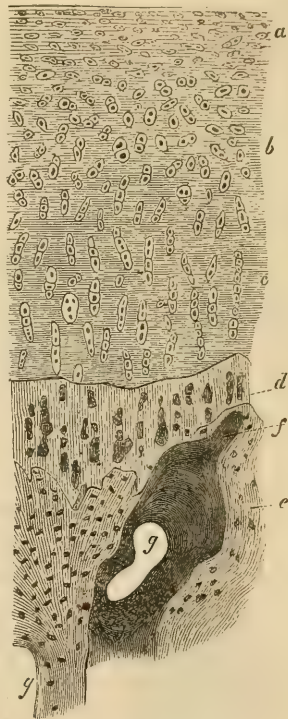 a
b
c
d
f
e
g
g